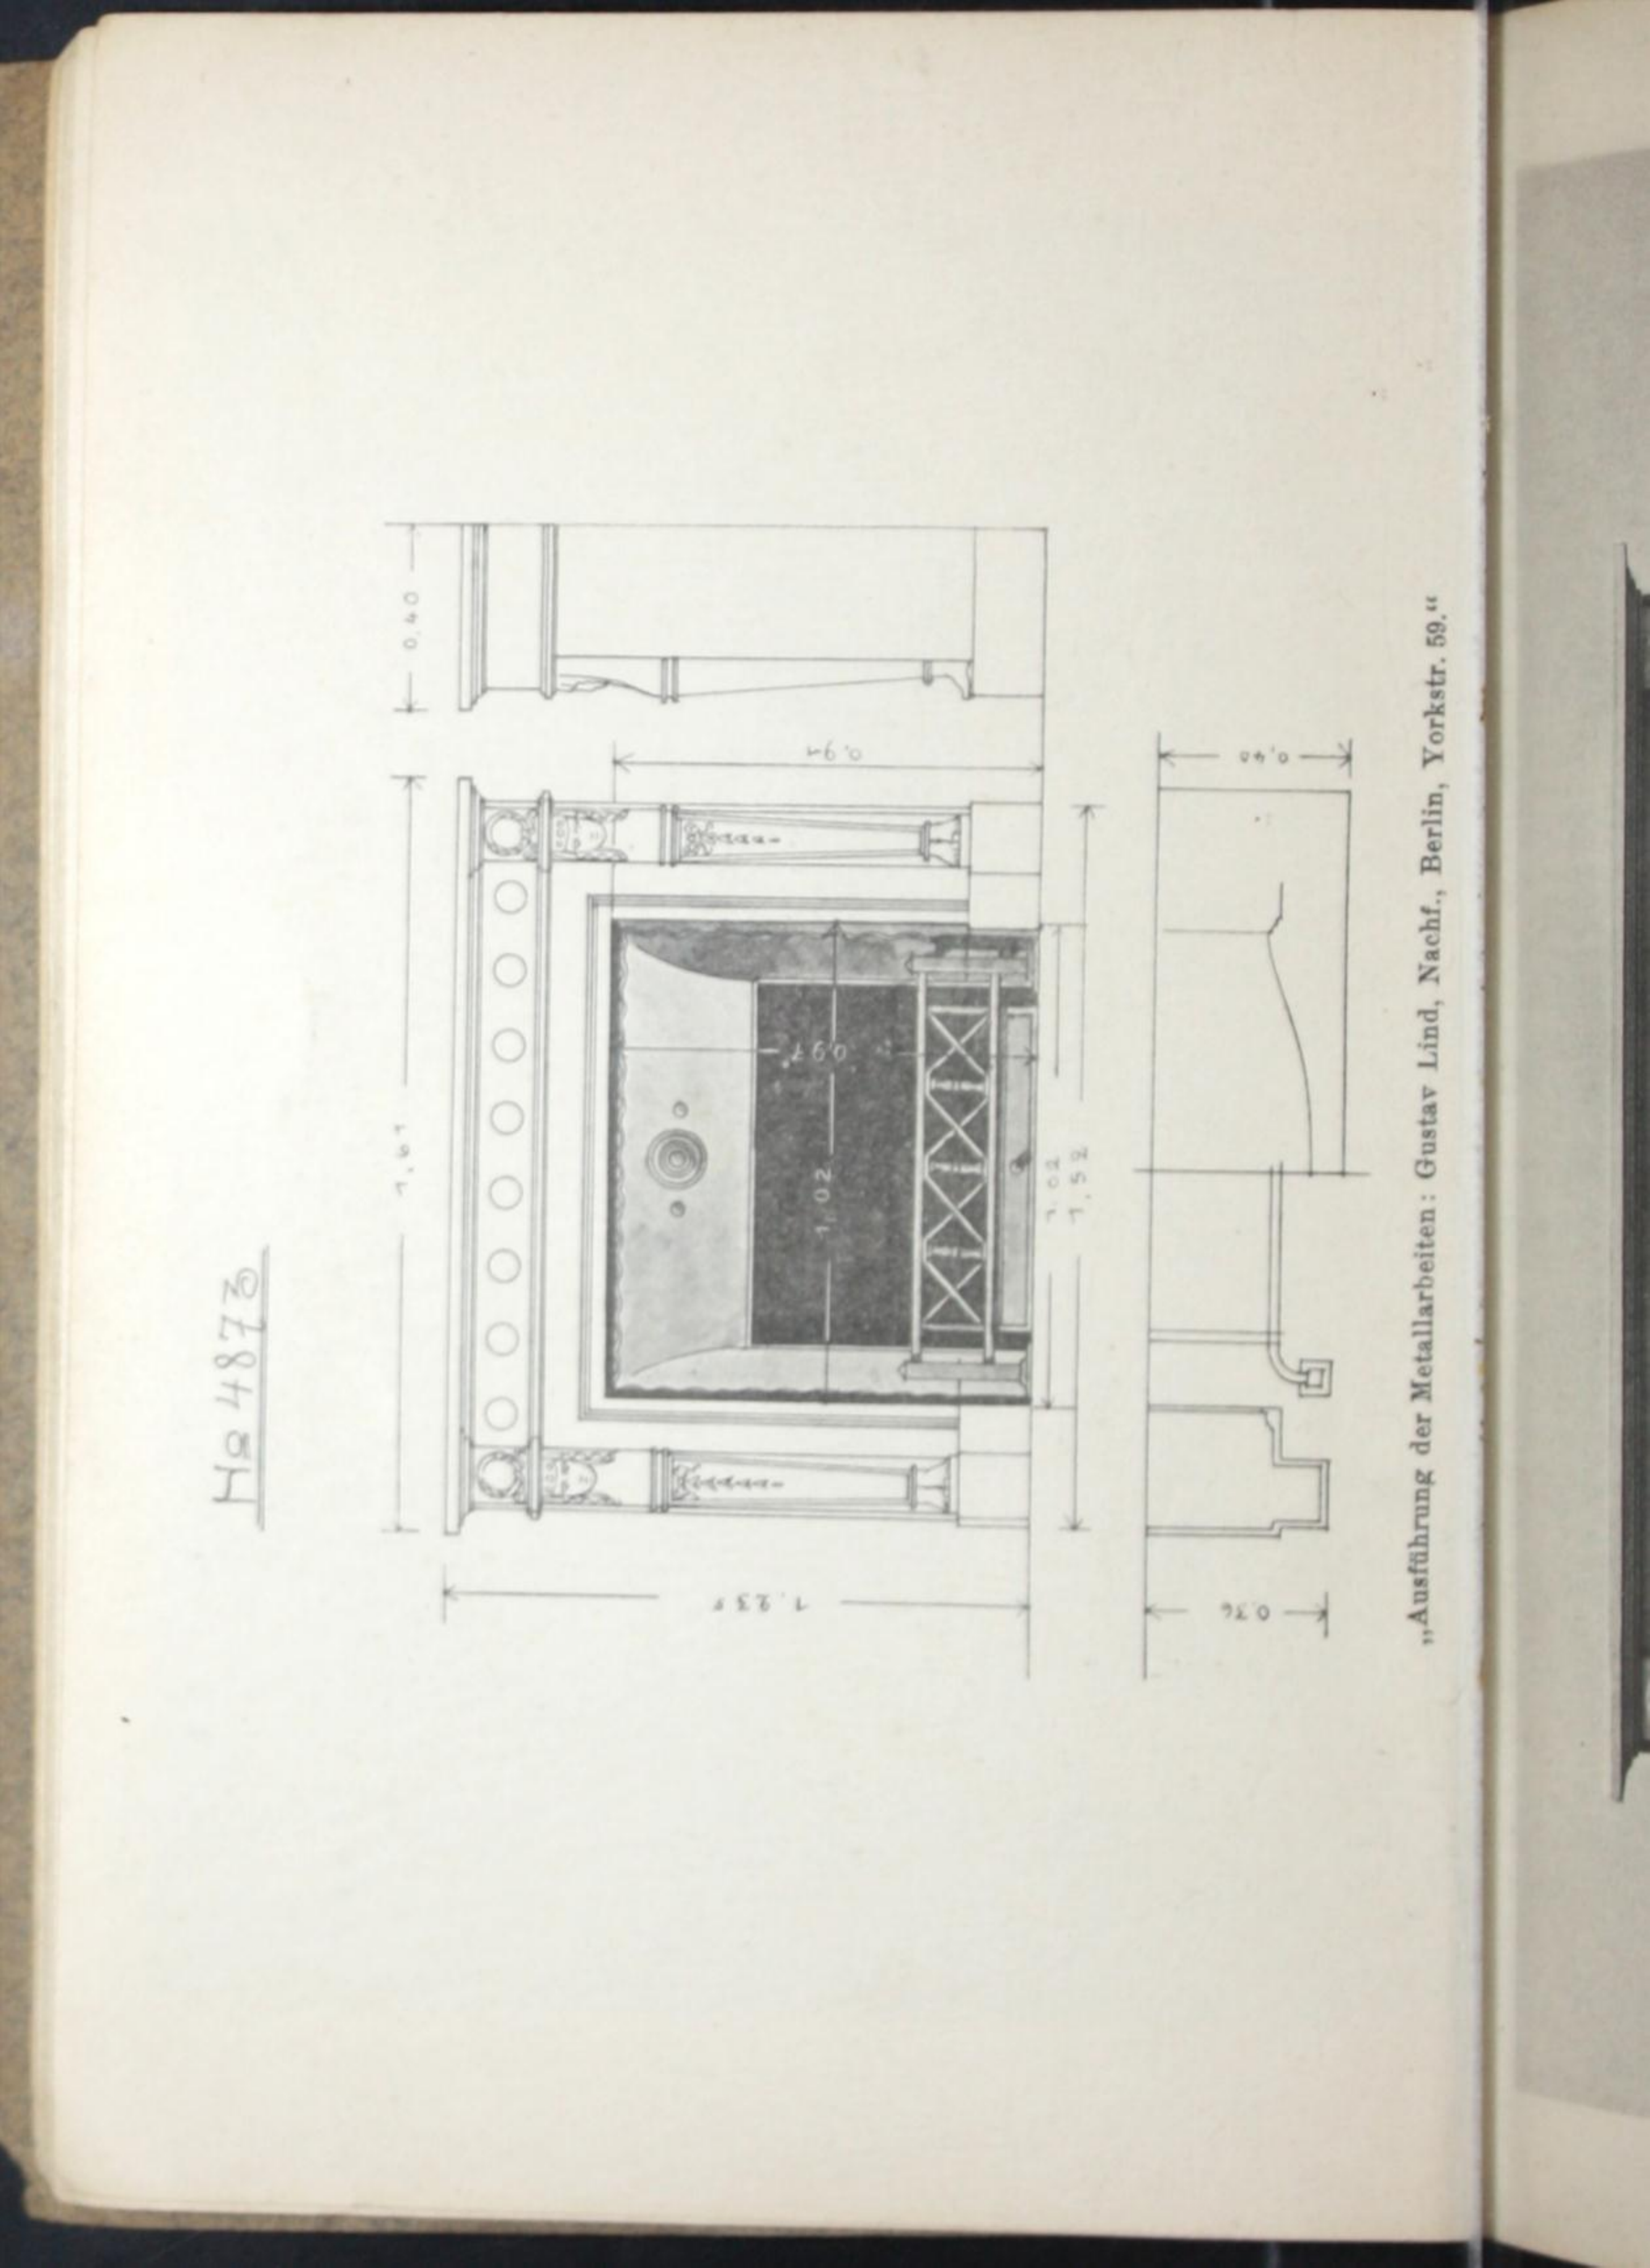 No 4873
1,61
0,40
0,91
0,97
1,02
1,02
1,52
0,40
0,36
„Ausführung der Metallarbeiten: Gustav Lind, Nachf., Berlin, Yorkstr. 59.“